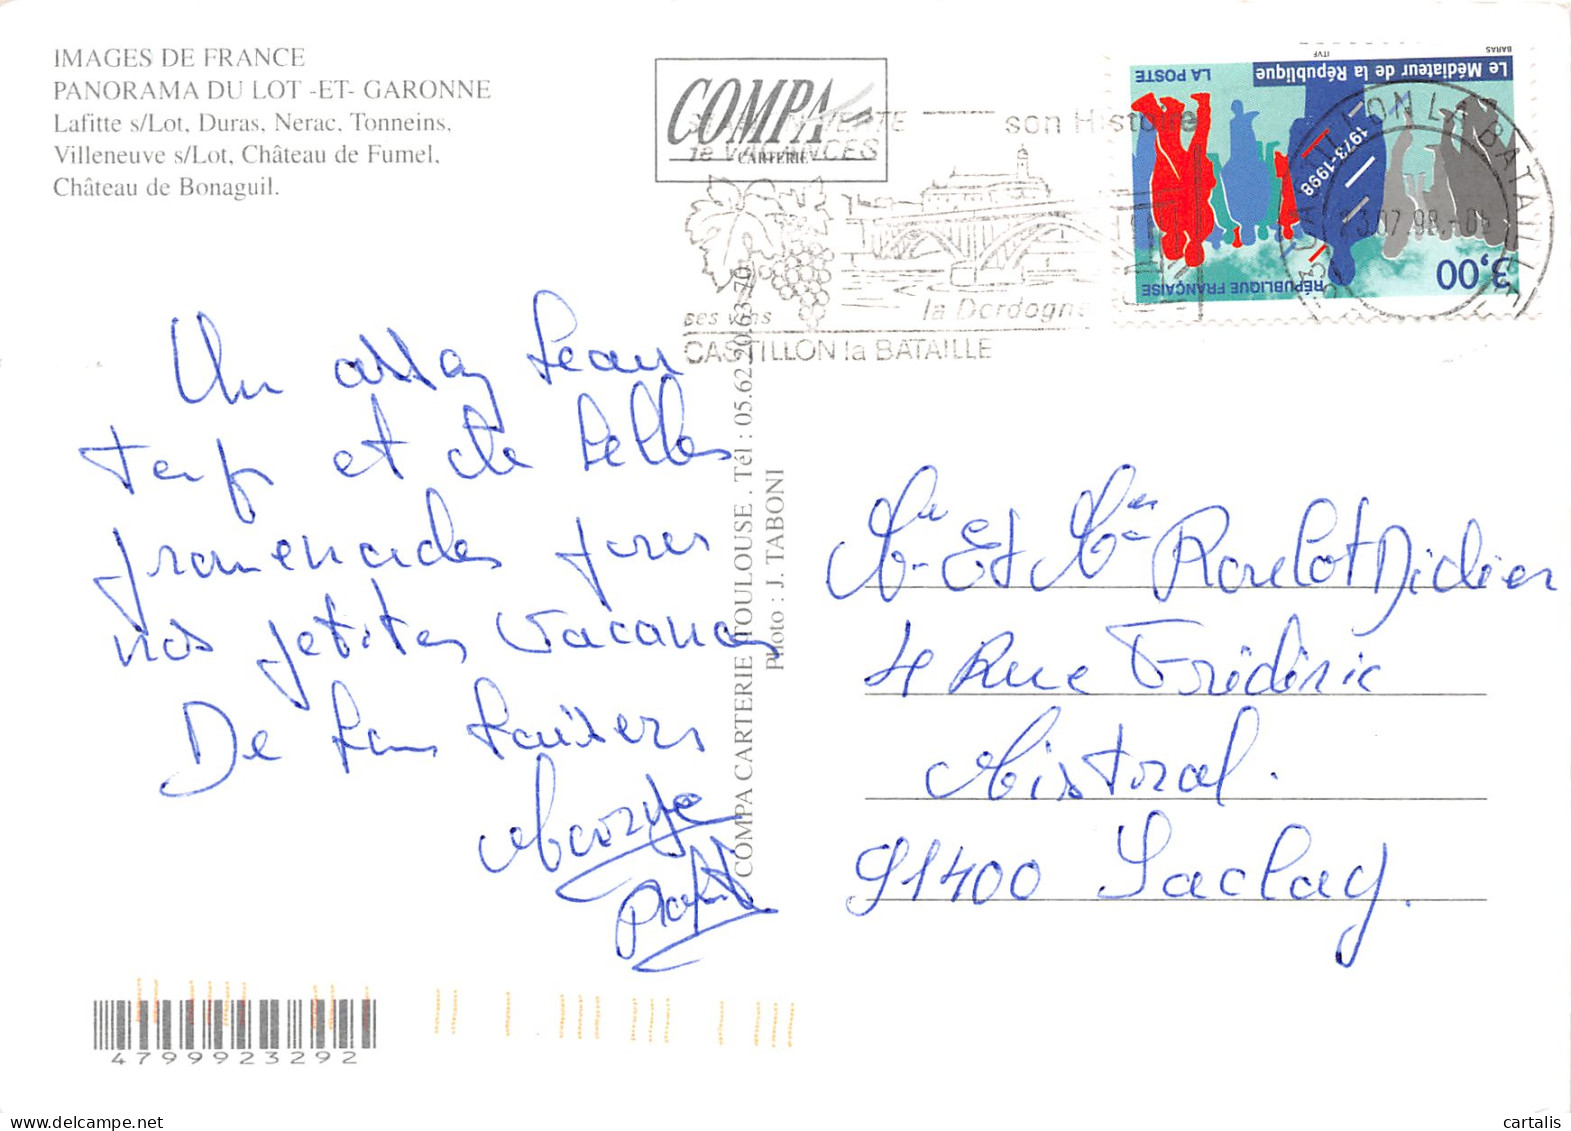 IMAGES DE FRANCE
PANORAMA DU LOT -ET- GARONNE
Lafitte s/Lot, Duras, Nerac, Tonneins,
Villeneuve s/Lot, Château de Fumel,
Château de Bonaguil.
COMPA
CARTERIE
son Histoire
VACANCES
ses vins
la Dordogne
CASTILLON la BATAILLE
BARAS
ITVF
Le Médiateur de la République
LA POSTE
1973-1998
3,00
RÉPUBLIQUE FRANÇAISE
CASTILLON LA BATAILLE
Un assez beau
temps et de belles
promenades pour
nos petites vacances
De bons baisers
COMPA CARTERIE TOULOUSE . Tél : 05.62.20.63.70
Photo : J. TABONI
Mr Et Mme Roulot Didier
4 Rue Frédéric
Mistral.
91400 Saclay.
4799923292
cartalis